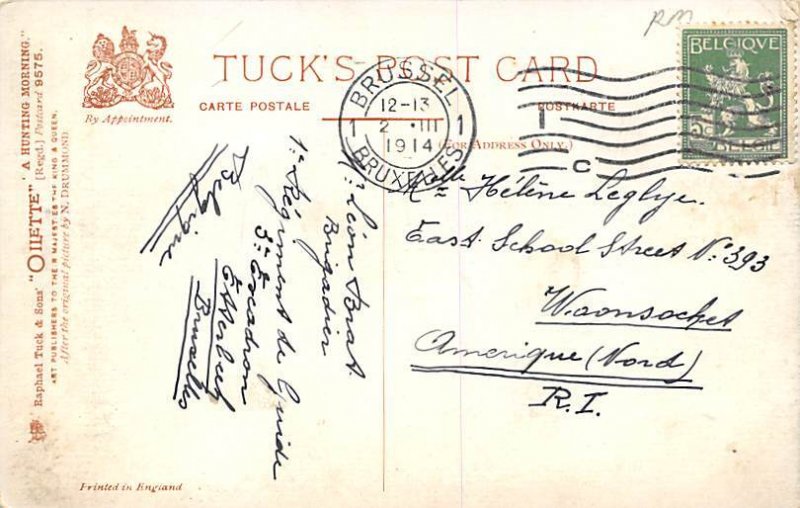 RM
TUCK'S POST CARD
CARTE POSTALE
POSTKARTE
(FOR ADDRESS ONLY.)
By Appointment.
BRUSSEL
12-13
1 2 III 1
1914
BRUXELLES
T
C
BELGIQUE
5c
BELGIË
Raphael Tuck & Sons' "OILETTE" "A HUNTING MORNING."
[Regd.] Postcard 9575.
ART PUBLISHERS TO THEIR MAJESTIES THE KING & QUEEN.
After the original picture by N. DRUMMOND.
Léon Brat
Brigadier
1er Régiment de Guide
3e Escadron
Etterbeek
Bruxelles
Belgique
Melle Hélène Leglye.
East School Street No: 393
Woonsocket
Amerique (Nord)
R.I.
Printed in England